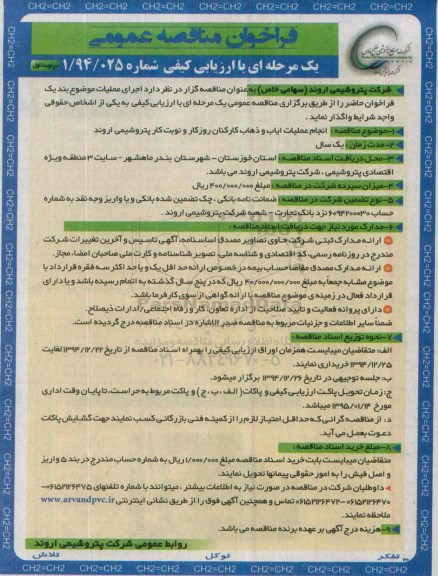 CH2=CH2 CH2=CH2 CH2=CH2 CH2=CH2 CH2=CH2 CH2=CH2 CH2=CH2
فراخوان مناقصه عمومی
یک مرحله ای با ارزیابی کیفی شماره ۱/۹۴/۰۲۵ نوبت اول
شرکت پتروشیمی اروند (سهامی خاص) به عنوان مناقصه گزار در نظر دارد اجرای عملیات موضوع بند یک
فراخوان حاضر را از طریق برگزاری مناقصه عمومی یک مرحله ای با ارزیابی کیفی به یکی از اشخاص حقوقی
واجد شرایط واگذار نماید.
۱-موضوع مناقصه : انجام عملیات ایاب و ذهاب کارکنان روزکار و نوبت کار پتروشیمی اروند
۲-مدت زمان : یک سال
۳-محل دریافت اسناد مناقصه : استان خوزستان - شهرستان بندر ماهشهر - سایت ۳ منطقه ویژه
اقتصادی پتروشیمی ، شرکت پتروشیمی اروند می باشد.
۴-میزان سپرده شرکت در مناقصه : مبلغ ۴۰۰/۰۰۰/۰۰۰ ریال
۵-نوع تضمین شرکت در مناقصه : ضمانت نامه بانکی ، چک تضمین شده بانکی و یا واریز وجه نقد به شماره
حساب نزد بانک تجارت - شعبه شرکت پتروشیمی اروند .
۶-مدارک مورد نیاز جهت دریافت اسناد مناقصه :
ارائه مدارک ثبتی شرکت حاوی تصاویر مصدق اساسنامه، آگهی تاسیس و آخرین تغییرات شرکت
مندرج در روزنامه رسمی، کد اقتصادی و شناسه ملی، تصویر شناسنامه و کارت ملی صاحبان امضاء مجاز.
ارائه مدارک مصدق مفاصا حساب بیمه در خصوص ارائه حداقل یک و یا حداکثر سه فقره قرارداد با
موضوع مشابه جمعاً به مبلغ ۴۰/۰۰۰/۰۰۰/۰۰۰ ریال که در پنج سال گذشته به اتمام رسیده باشد و یا دارای
قرارداد فعال در زمینه ی موضوع مناقصه با ارائه گواهی از سوی کارفرما باشد.
دارای پروانه فعالیت و تایید صلاحیت از اداره تعاون، کار و رفاه اجتماعی /ادارات ذیصلاح.
ضمناً سایر اطلاعات و جزئیات مربوط به مناقصه صدر الاشاره در اسناد مناقصه درج گردیده است.
۷-نحوه توزیع اسناد مناقصه :
الف: متقاضیان میبایست همزمان اوراق ارزیابی کیفی را بهمراه اسناد مناقصه از تاریخ ۱۳۹۴/۱۲/۲۲ لغایت
۱۳۹۴/۱۲/۲۵ خریداری نمایند.
ب: جلسه توجیهی در تاریخ ۱۳۹۴/۱۲/۲۶ برگزار میشود.
ج: زمان تحویل پاکت ارزیابی کیفی و پاکات (الف ، ب ، ج) و پاکت مربوط به حراست، تا پایان وقت اداری
مورخ ۱۳۹۵/۰۱/۱۴ میباشد.
د: از مناقصه گرانی که حداقل امتیاز لازم را از کمیته فنی بازرگانی کسب نمایند جهت گشایش پاکات
دعوت بعمل می آید.
۸-مبلغ خرید اسناد مناقصه :
متقاضیان میبایست بابت خرید اسناد مناقصه مبلغ ۱/۰۰۰/۰۰۰ ریال به شماره حساب مندرج در بند ۵ واریز
و اصل فیش را به امور حقوقی پیمانها تحویل نمایند.
داوطلبان شرکت در مناقصه در صورت نیاز به اطلاعات بیشتر ، میتوانند با شماره تلفنهای ۰۶۱۵۲۱۲۶۴۷۵-
۰۶۱۵۲۱۲۶۴۷۲-۰۶۱۵۲۱۲۶۴۷۰ تماس و همچنین آگهی فوق را از طریق نشانی اینترنتی www.arvandpvc.ir
ملاحظه نمایند.
۹-هزینه درج آگهی بر عهده برنده مناقصه می باشد.
روابط عمومی شرکت پتروشیمی اروند
تفکر توکل تلاش
CH2=CH2 CH2=CH2 CH2=CH2 CH2=CH2 CH2=CH2 CH2=CH2 CH2=CH2